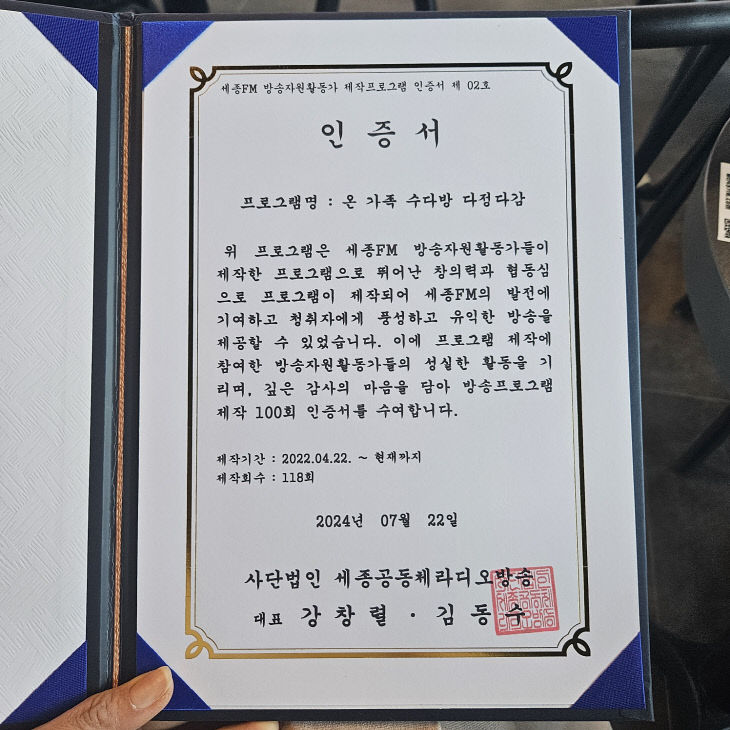 세종FM 방송자원활동가 제작프로그램 인증서 제 02호
인 증 서
프로그램명 : 온 가족 수다방 다정다감
위 프로그램은 세종FM 방송자원활동가들이
제작한 프로그램으로 뛰어난 창의력과 협동심
으로 프로그램이 제작되어 세종FM의 발전에
기여하고 청취자에게 풍성하고 유익한 방송을
제공할 수 있었습니다. 이에 프로그램 제작에
참여한 방송자원활동가들의 성실한 활동을 기
리며, 깊은 감사의 마음을 담아 방송프로그램
제작 100회 인증서를 수여합니다.
제작기간 : 2022.04.22. ~ 현재까지
제작회수 : 118회
2024년 07월 22일
사단법인 세종공동체라디오방송
대표 강 창 렬 · 김 동 수